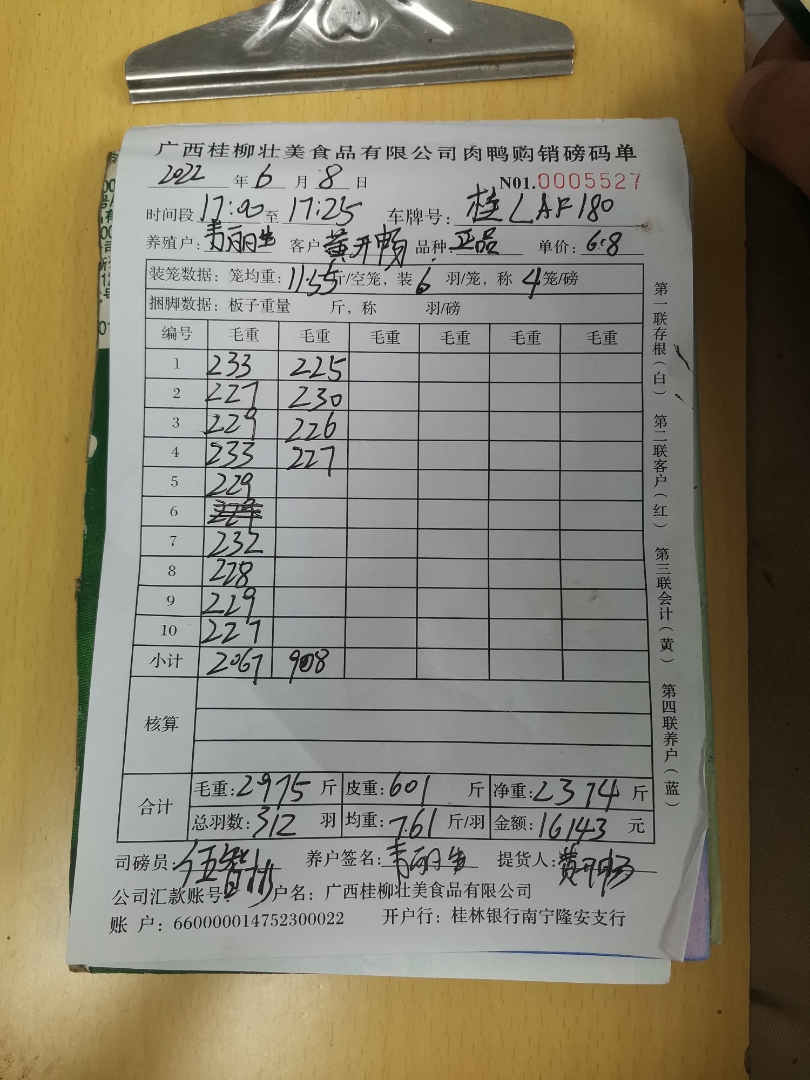 广西桂柳壮美食品有限公司肉鸭购销磅码单
2022 年 6 月 8 日 N01.0005527
时间段 17:00 至 17:25 车牌号: 桂LAF180
养殖户: 丽生 客户 黄开畅 品种: 正品 单价: 6.8
装笼数据: 笼均重: 11.55 斤/空笼, 装 6 羽/笼, 称 4 笼/磅
捆脚数据: 板子重量 斤, 称 羽/磅
编号 毛重 毛重 毛重 毛重 毛重 毛重
1 233 225
2 227 230
3 229 226
4 233 227
5 229
6
7 232
8 228
9 229
10 227
小计 2067 908
核算
合计 毛重: 2975 斤 皮重: 601 斤 净重: 2374 斤
总羽数: 312 羽 均重: 7.61 斤/羽 金额: 16143 元
司磅员: 伍智彬 养户签名: 丽生 提货人: 黄开畅
公司汇款账号: 户名: 广西桂柳壮美食品有限公司
账 户: 660000014752300022 开户行: 桂林银行南宁隆安支行
第一联存根(白) 第二联客户(红) 第三联会计(黄) 第四联养户(蓝)